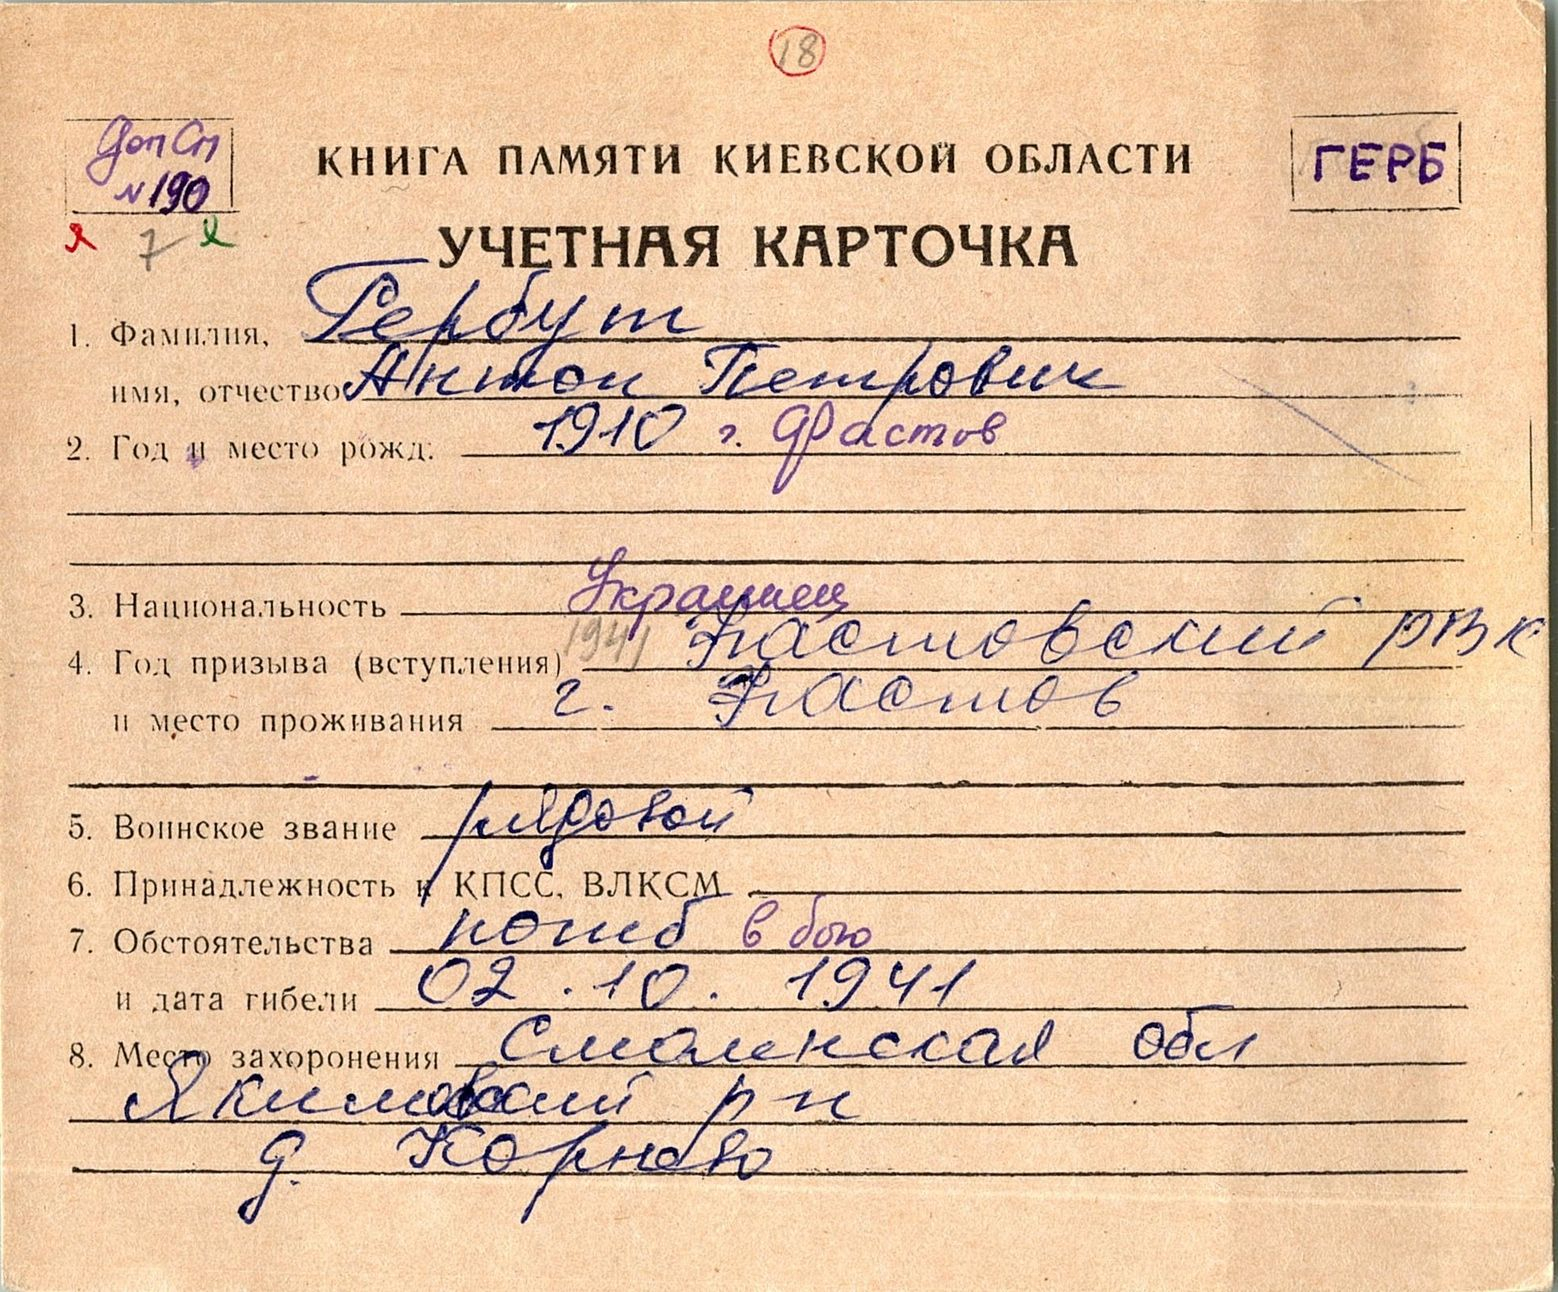 18
Доп Сп
N 190
КНИГА ПАМЯТИ КИЕВСКОЙ ОБЛАСТИ
ГЕРБ
7
УЧЕТНАЯ КАРТОЧКА
1. Фамилия, Гербут
имя, отчество Антон Петрович
2. Год и место рожд. 1910 г. Фастов
3. Национальность Украинец
4. Год призыва (вступления) 1941 Фастовский РВК
и место проживания г. Фастов
5. Воинское звание рядовой
6. Принадлежность к КПСС, ВЛКСМ
7. Обстоятельства погиб в бою
и дата гибели 02.10.1941
8. Место захоронения Смоленская обл
Якимовский р н
д. Корнево